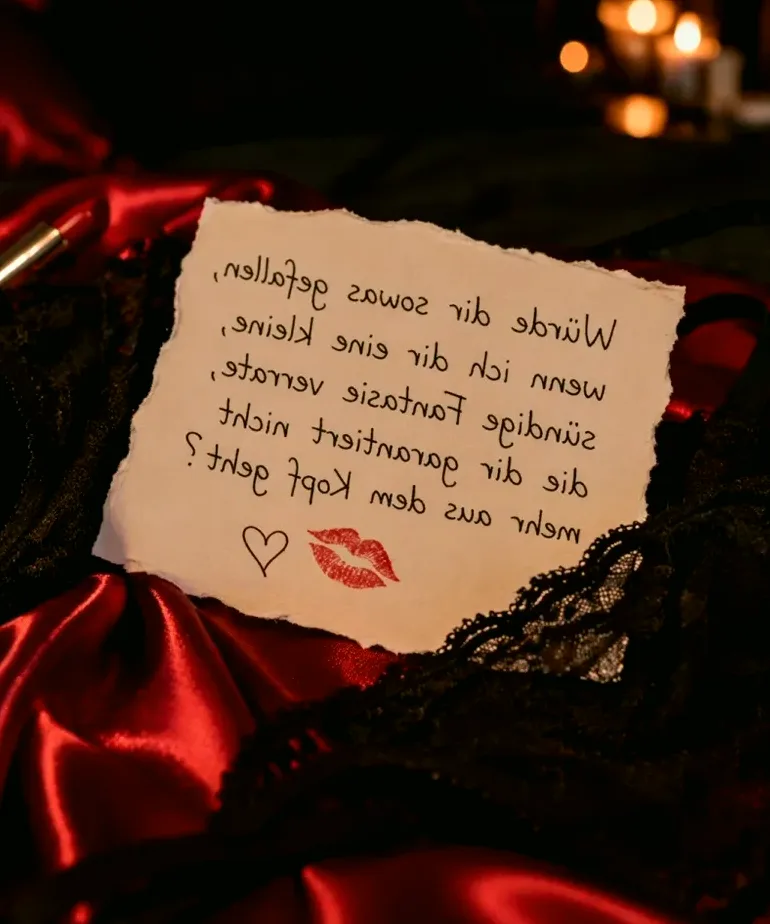 Würde dir sowas gefallen,
wenn ich dir eine kleine,
sündige Fantasie verrate,
die dir garantiert nicht
mehr aus dem Kopf geht?